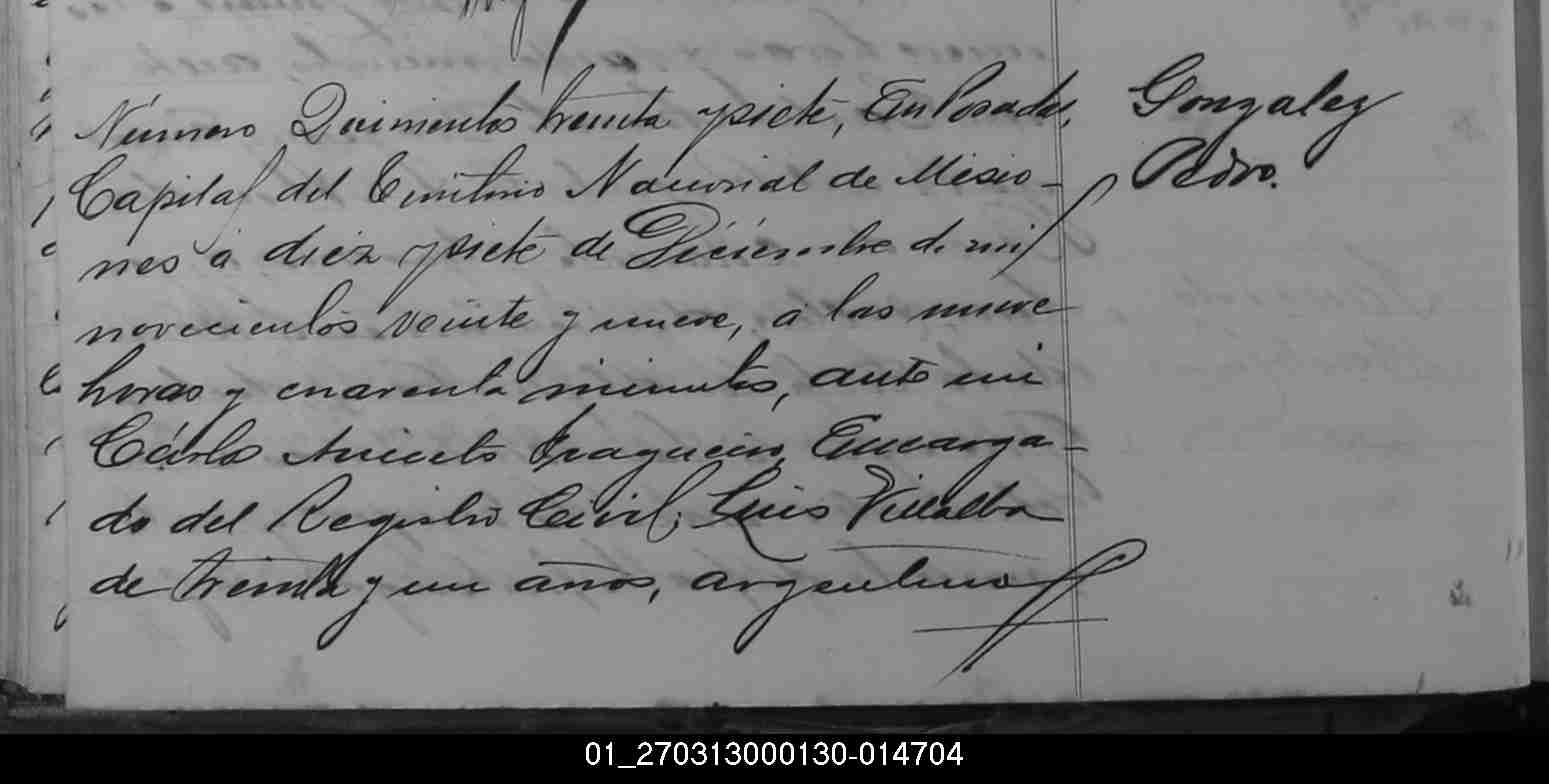 Número Quinientos treinta y siete, En Posadas,
Capital del Territorio Nacional de Misio-
nes á diez y siete de Diciembre de mil
novecientos veinte y nueve, á las nueve
horas y cuarenta minutos, ante mi
Cárlos Aniceto Encarga-
do del Registro Civil, Luis Villalba
de treinta y un años, argentino
Gonzalez
Pedro.
01_270313000130-014704